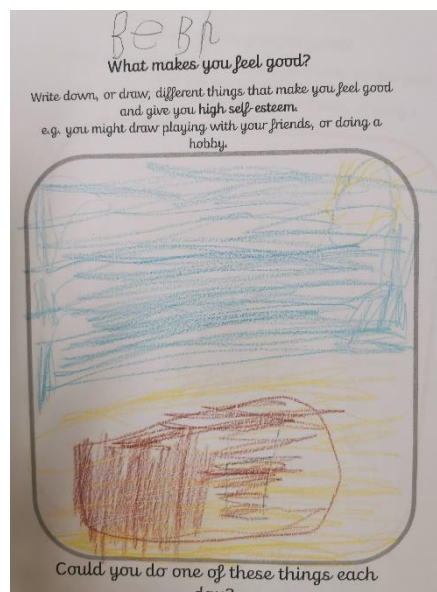 What makes you feel good?
Write down, or draw, different things that make you feel good
and give you high self-esteem.
e.g. you might draw playing with your friends, or doing a
hobby.
Could you do one of these things each
day?